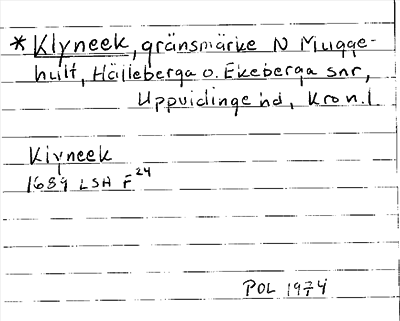 * Klyneek, gränsmärke N Mugge-
hult, Hälleberga o. Ekeberga snr,
Uppvidinge hd, Kron. l.
Klyneek
1689 LSH F 24
POL 1974